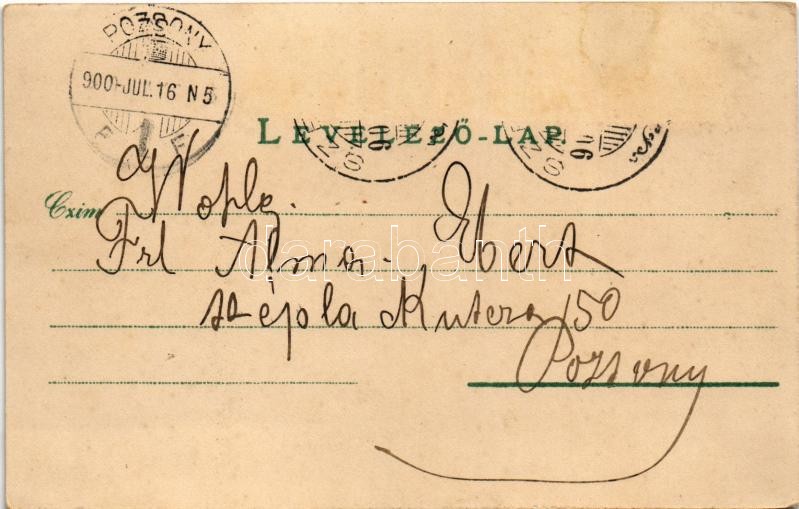 POZSONY
900-JUL.16 N5
LEVELEZŐ-LAP.
Czim
Wople.
Frl Alma Ebert
Kutcza 150
Pozsony
darabanth